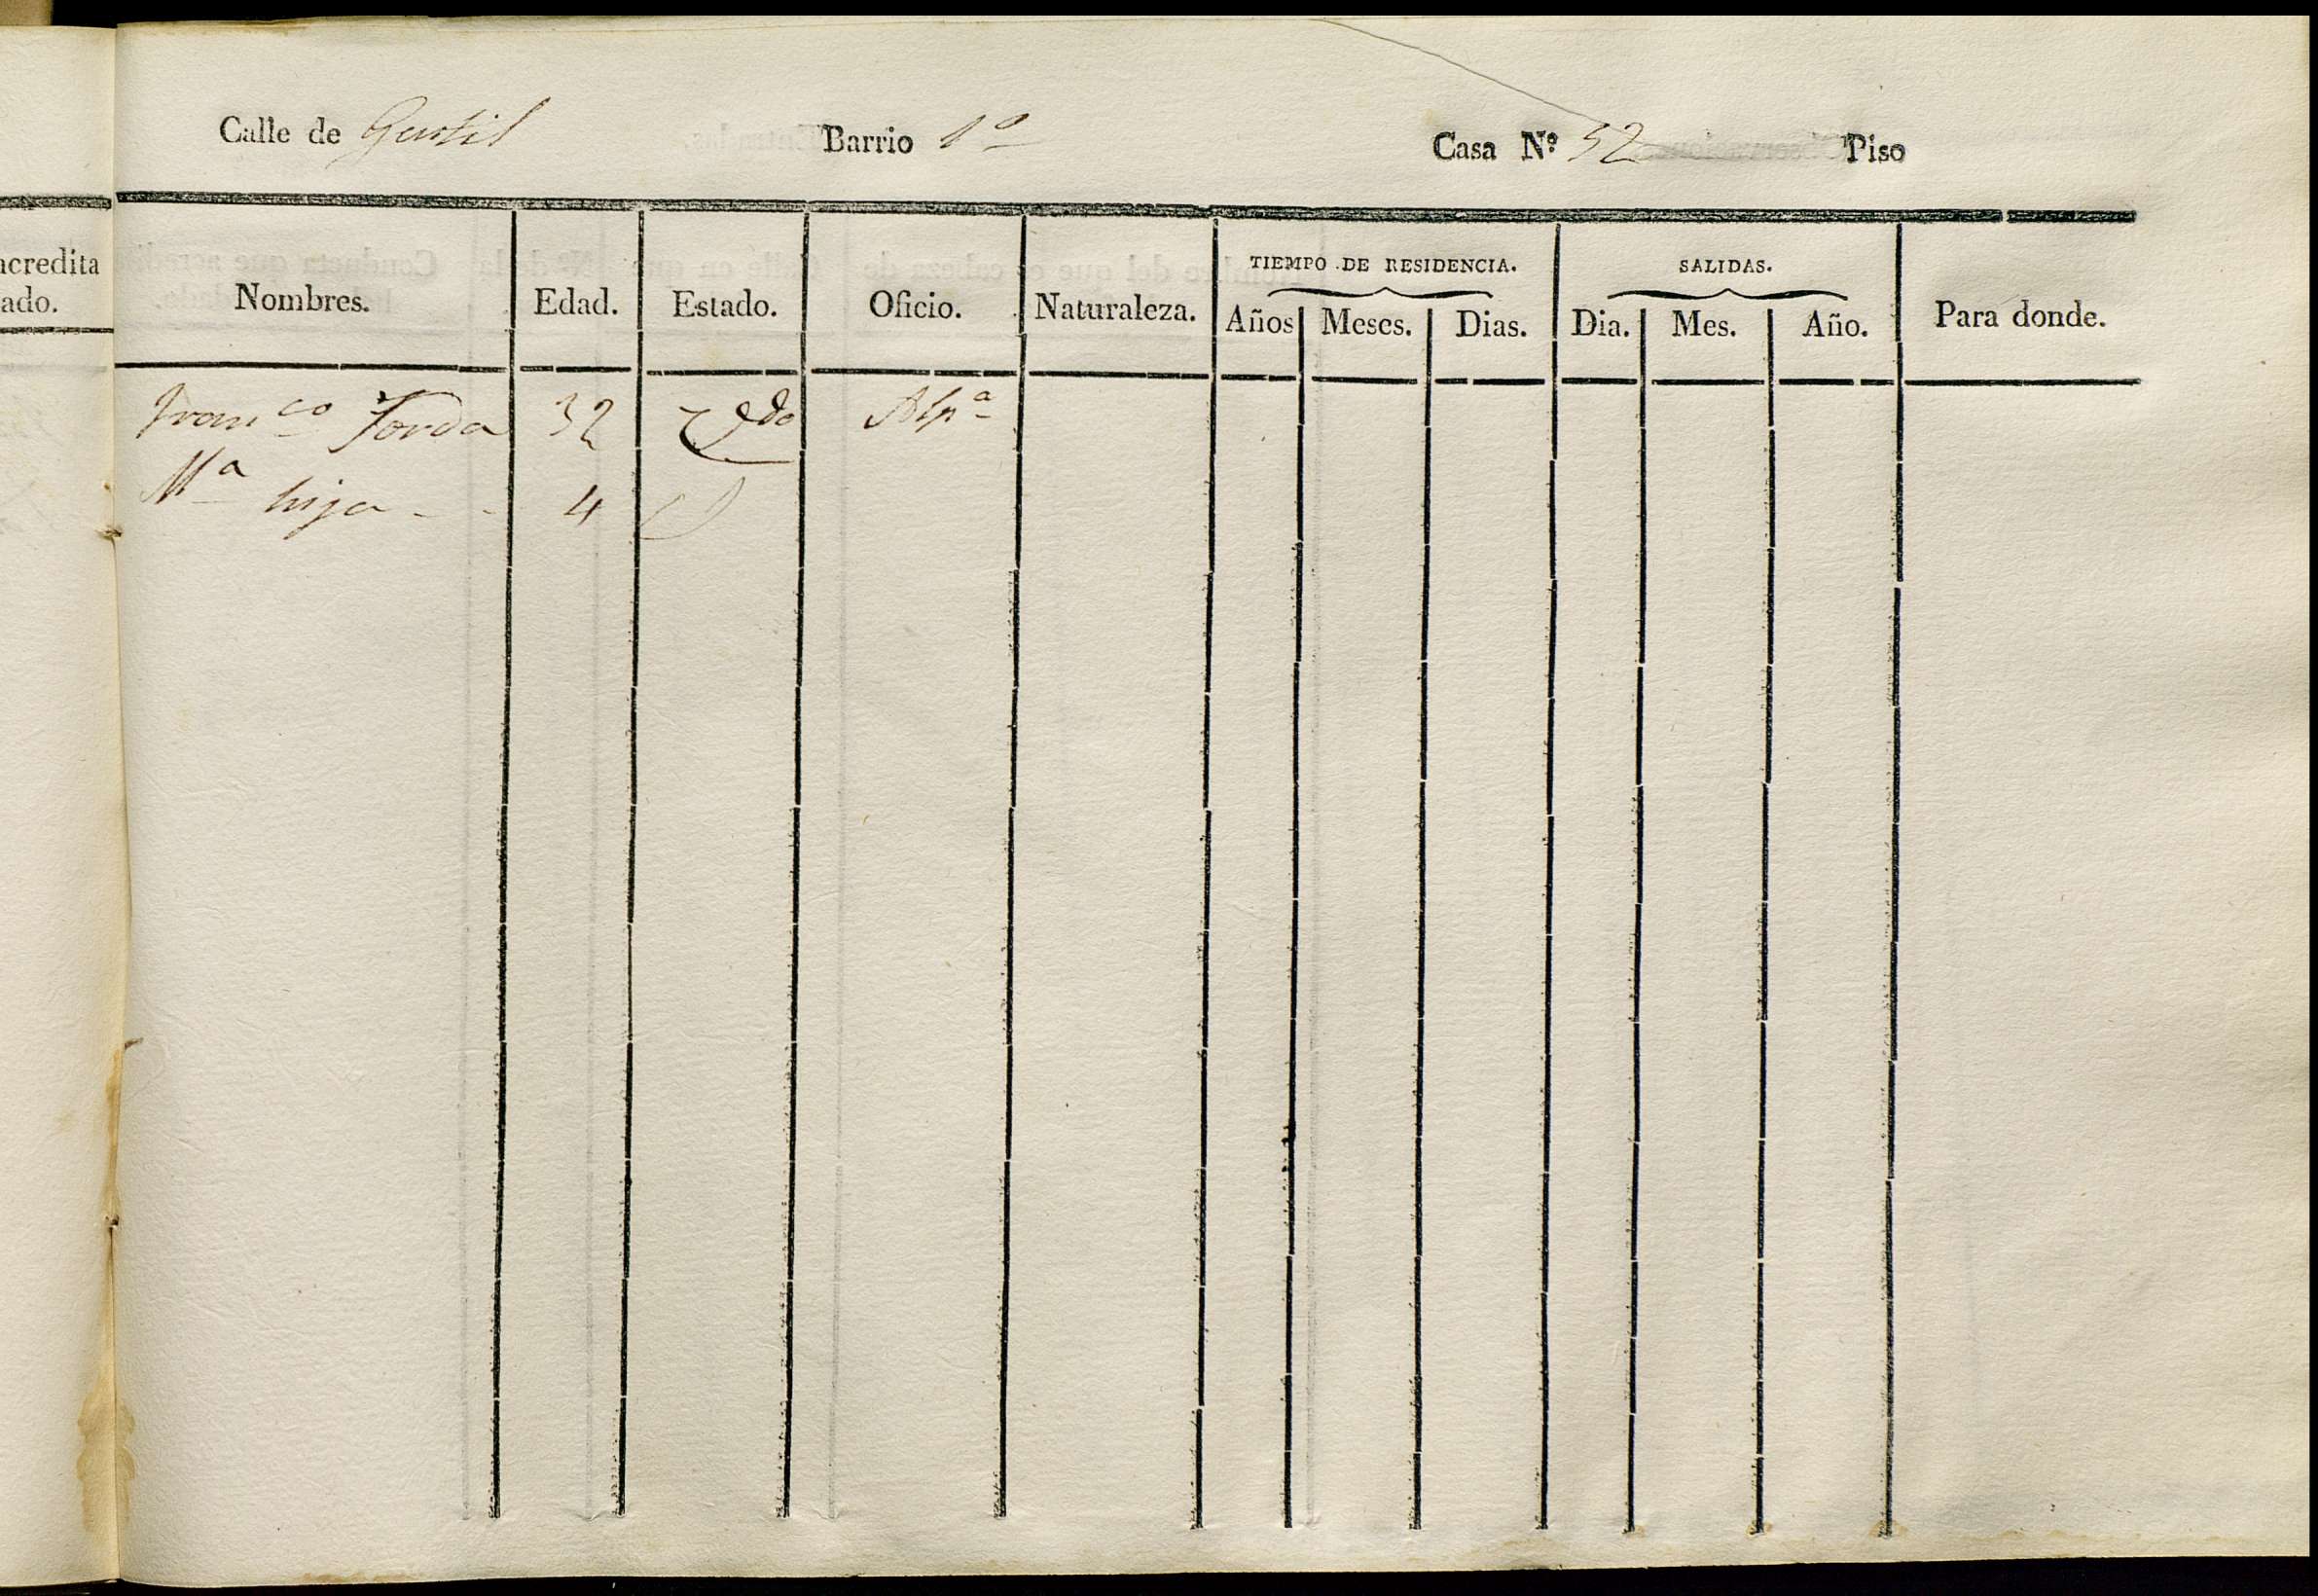 Calle de Gentil Barrio 1º Casa Nº 52 Piso
acredita
ado.
TIEMPO DE RESIDENCIA. SALIDAS.
Nombres. Edad. Estado. Oficio. Naturaleza. Años Meses. Dias. Dia. Mes. Año. Para donde.
Franco Jorda 32 Alpa
Ma hija - - 4